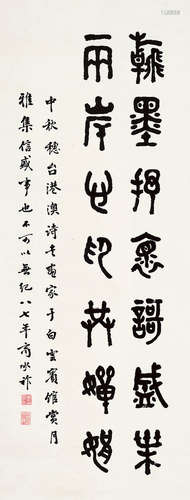 翰墨抒怀謌盛業
兩岸心印共嬋娟
中秋穗台港澳诗书画家于白雲賓馆赏月
雅集信盛事也不可以無紀八七年商承祚